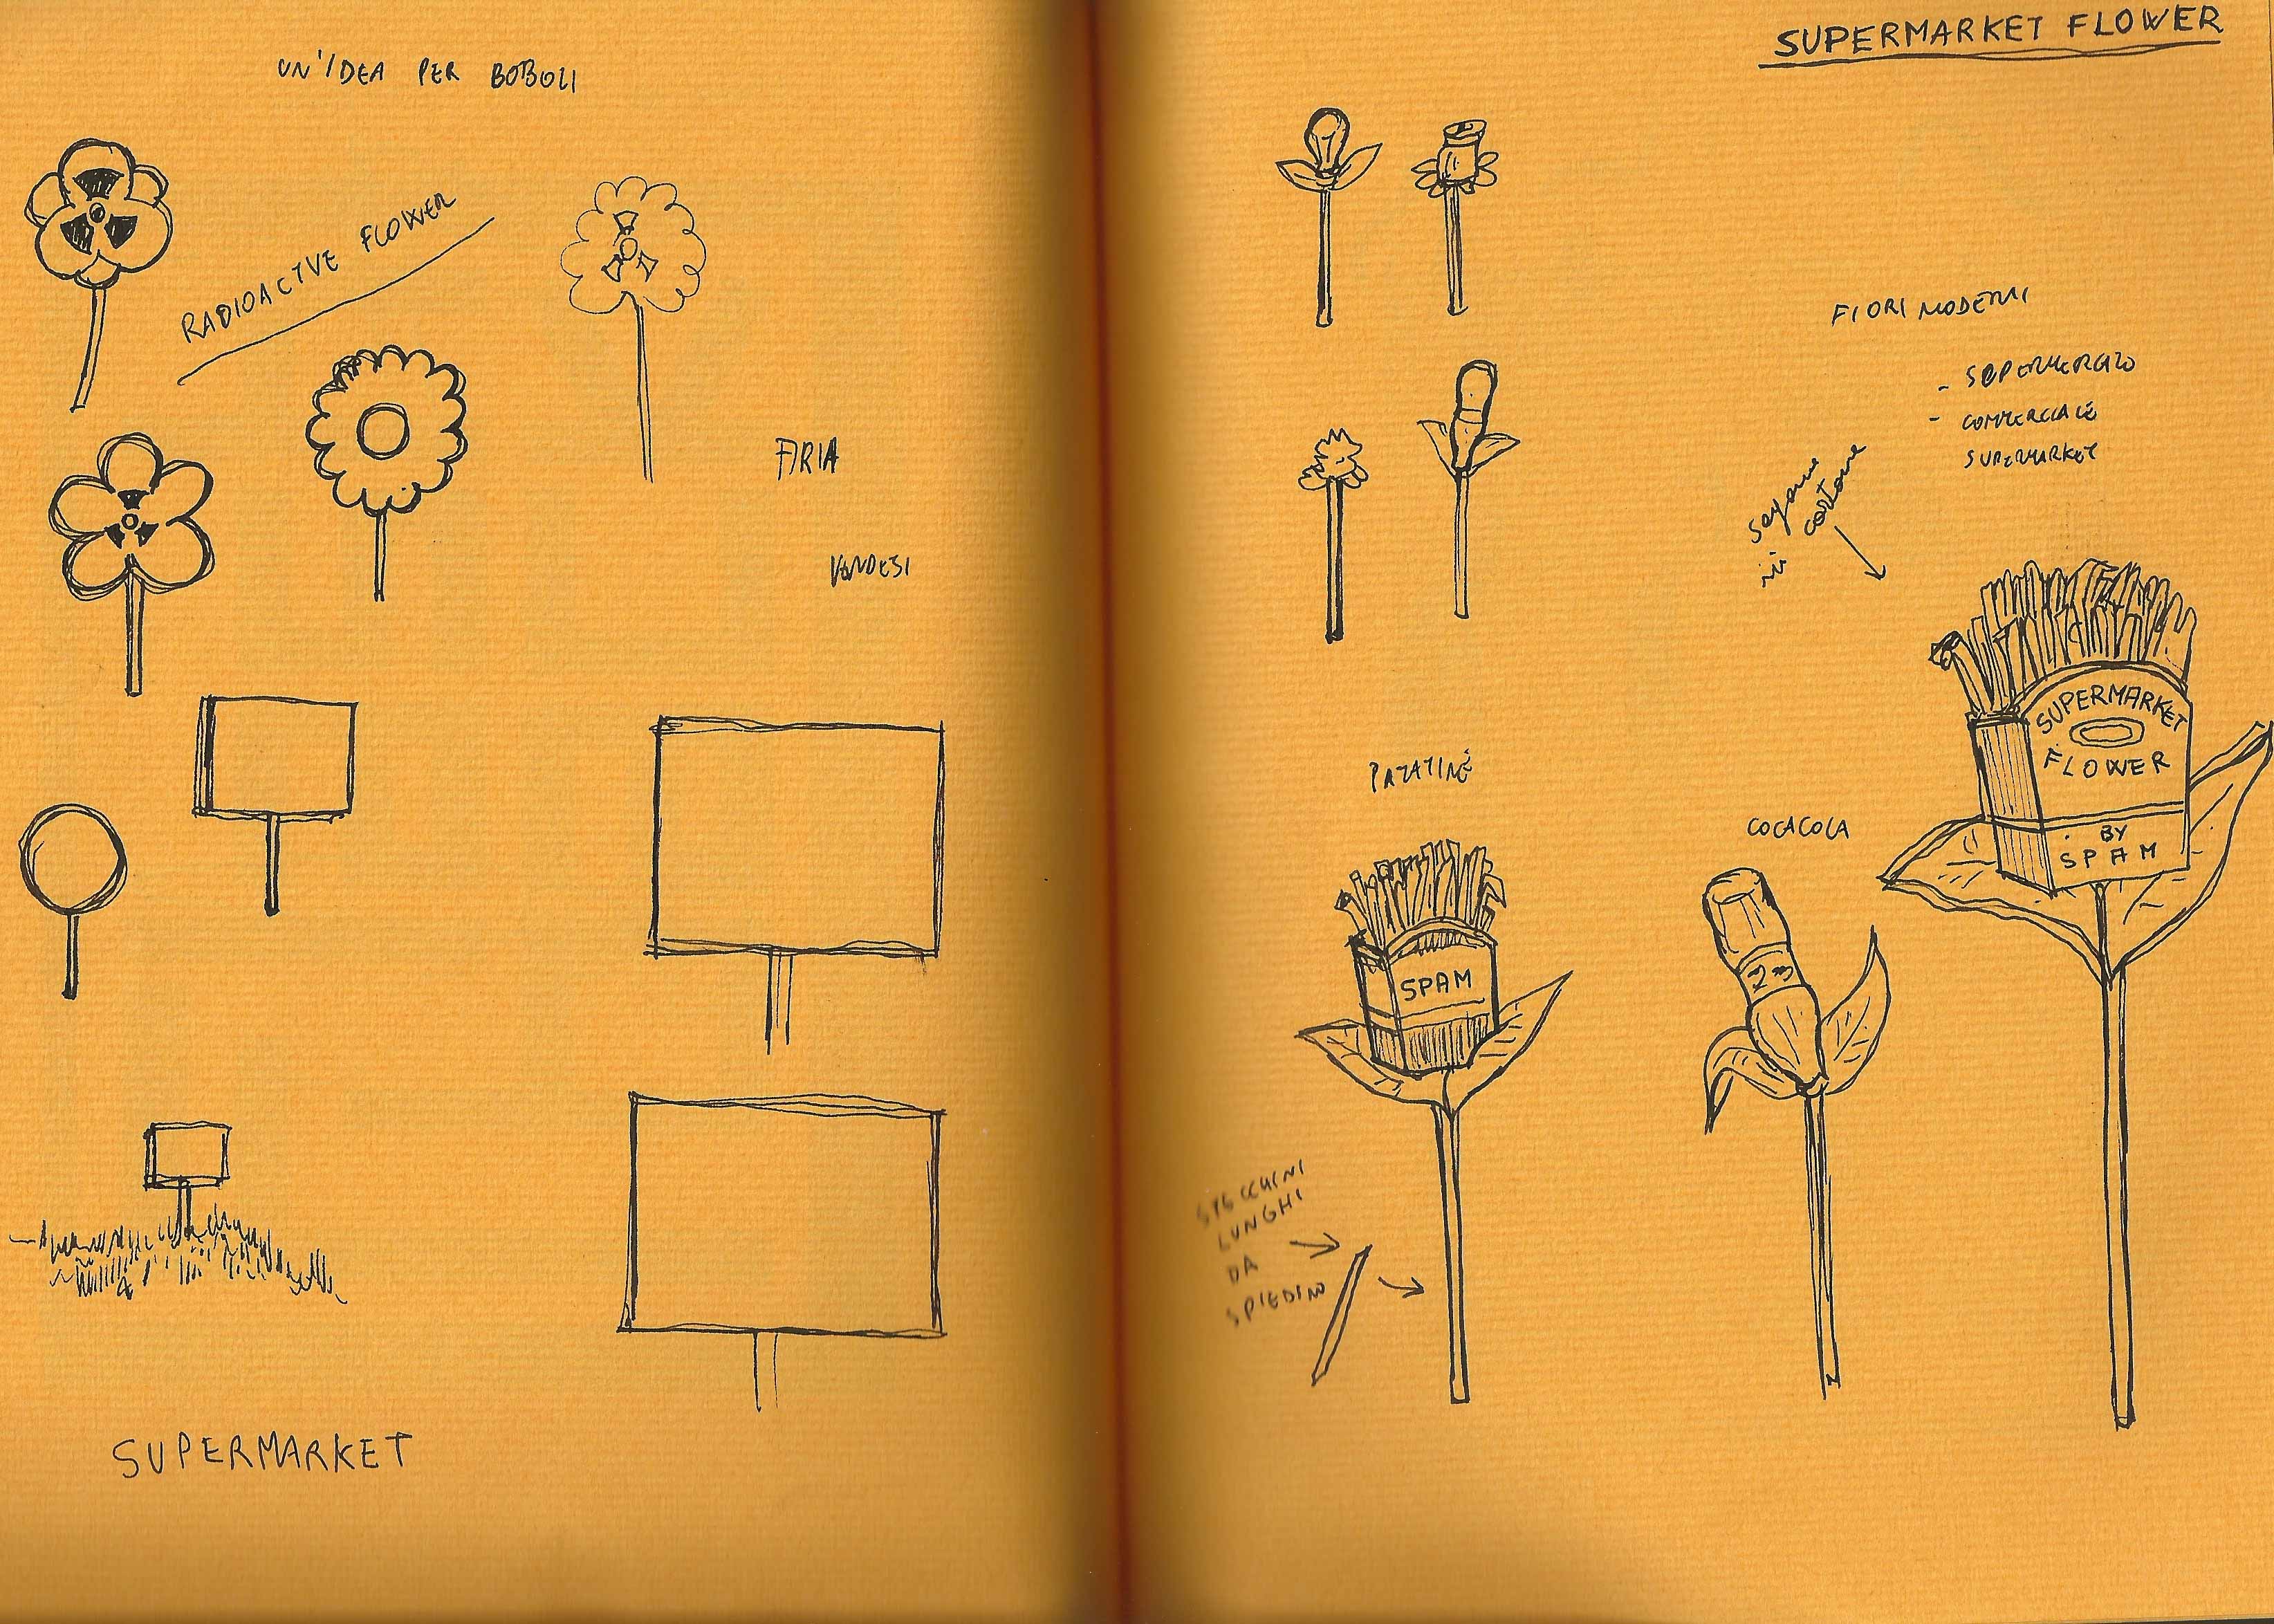 UN'IDEA PER BOBOLI
RADIOACTIVE FLOWER
ARIA
VENDESI
SUPERMARKET
SUPERMARKET FLOWER
FIORI MODERNI
- SUPERMERCATO
- COMMERCIALE
SUPERMARKET
in cartone
PATATINE
COCACOLA
SUPERMARKET
FLOWER
BY
SPAM
SPAM
STECCHINI
LUNGHI
DA
SPIEDINO